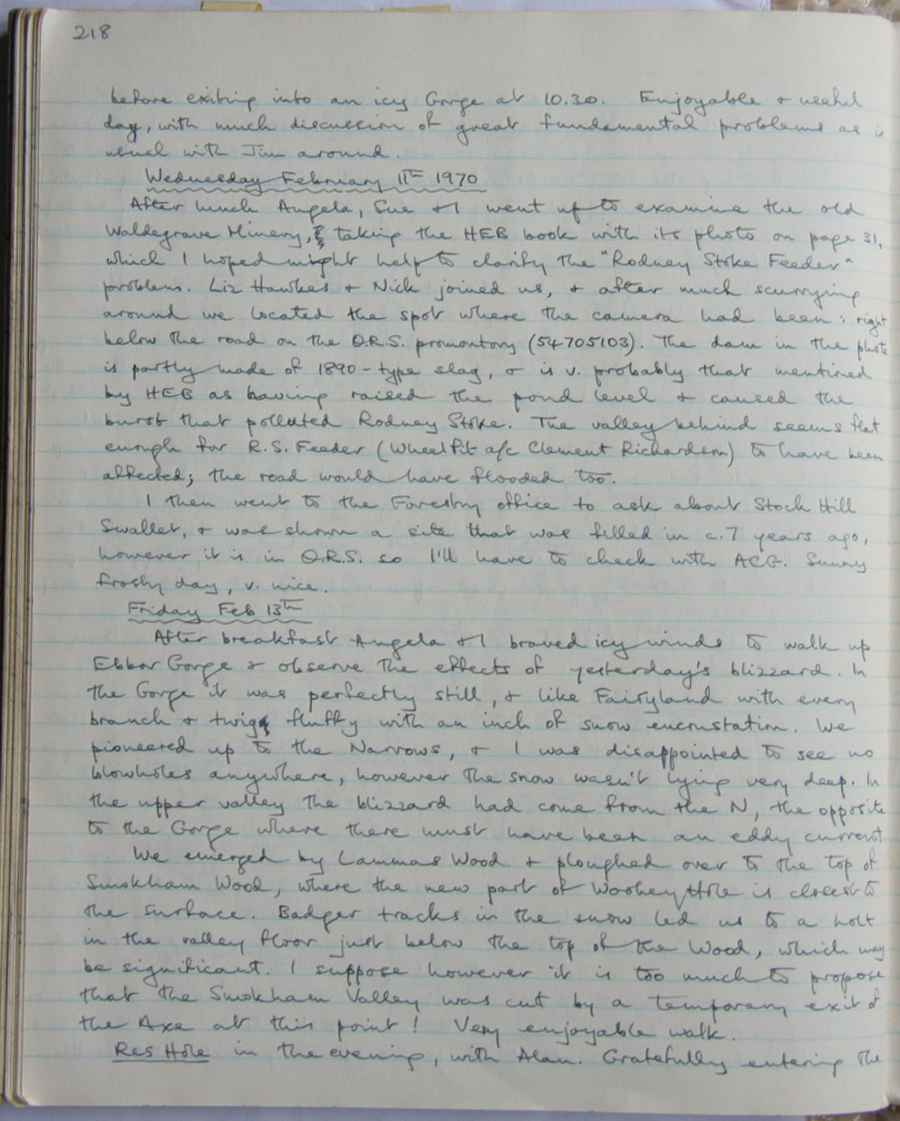 218
before exiting into an icy Gorge at 10.30. Enjoyable & useful
day, with much discussion of great fundamental problems as is
usual with Jim around.
Wednesday February 11TH 1970
After lunch Angela, Sue & I went up to examine the old
Waldegrave Minery, taking the HEB book with its photo on page 31,
which I hoped might help to clarify the "Rodney Stoke Feeder"
problem. Liz Hawkes & Nick joined us, & after much scurrying
around we located the spot where the camera had been: right
below the road on the O.R.S. promontory (54705103). The dam in the photo
is partly made of 1890-type slag, & is v. probably that mentioned
by HEB as having raised the pond level & caused the
burst that polluted Rodney Stoke. The valley behind seems flat
enough for R.S. Feeder (Wheel Pit a/c Clement Richardson) to have been
affected; the road would have flooded too.
I then went to the Forestry office to ask about Stock Hill
Swallet, & was shown a site that was filled in c.7 years ago,
however it is in O.R.S. so I'll have to check with ACG. Sunny
frosty day, v. nice.
Friday Feb 13TH
After breakfast Angela & I braved icy winds to walk up
Ebbor Gorge & observe the effects of yesterday's blizzard. In
the Gorge it was perfectly still, & like Fairyland with every
branch & twig fluffy with an inch of snow encrustation. We
pioneered up to the Narrows, & I was disappointed to see no
blowholes anywhere, however the snow wasn't lying very deep. In
the upper valley the blizzard had come from the N, the opposite
to the Gorge where there must have been an eddy current.
We emerged by Lammas Wood & ploughed over to the top of
Smokham Wood, where the new part of Wookey Hole is closest to
the surface. Badger tracks in the snow led us to a holt
in the valley floor just below the top of the Wood, which may
be significant. I suppose however it is too much to propose
that the Smokham Valley was cut by a temporary exit of
the Axe at this point! Very enjoyable walk.
Res Hole in the evening, with Alan. Gratefully entering the